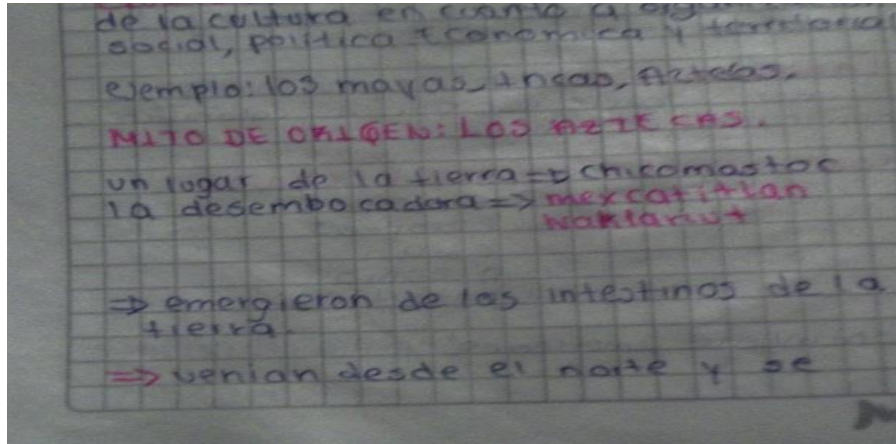 de la cultura en cuanto a
social, política economica y
ejemplo: los mayas, incas, Aztecas.
MITO DE ORIGEN: LOS AZTECAS.
un lugar de la tierra => chicomostoc
la desembocadora => mexcatitlan
=> emergieron de los intestinos de la
tierra.
=> venian desde el norte y se